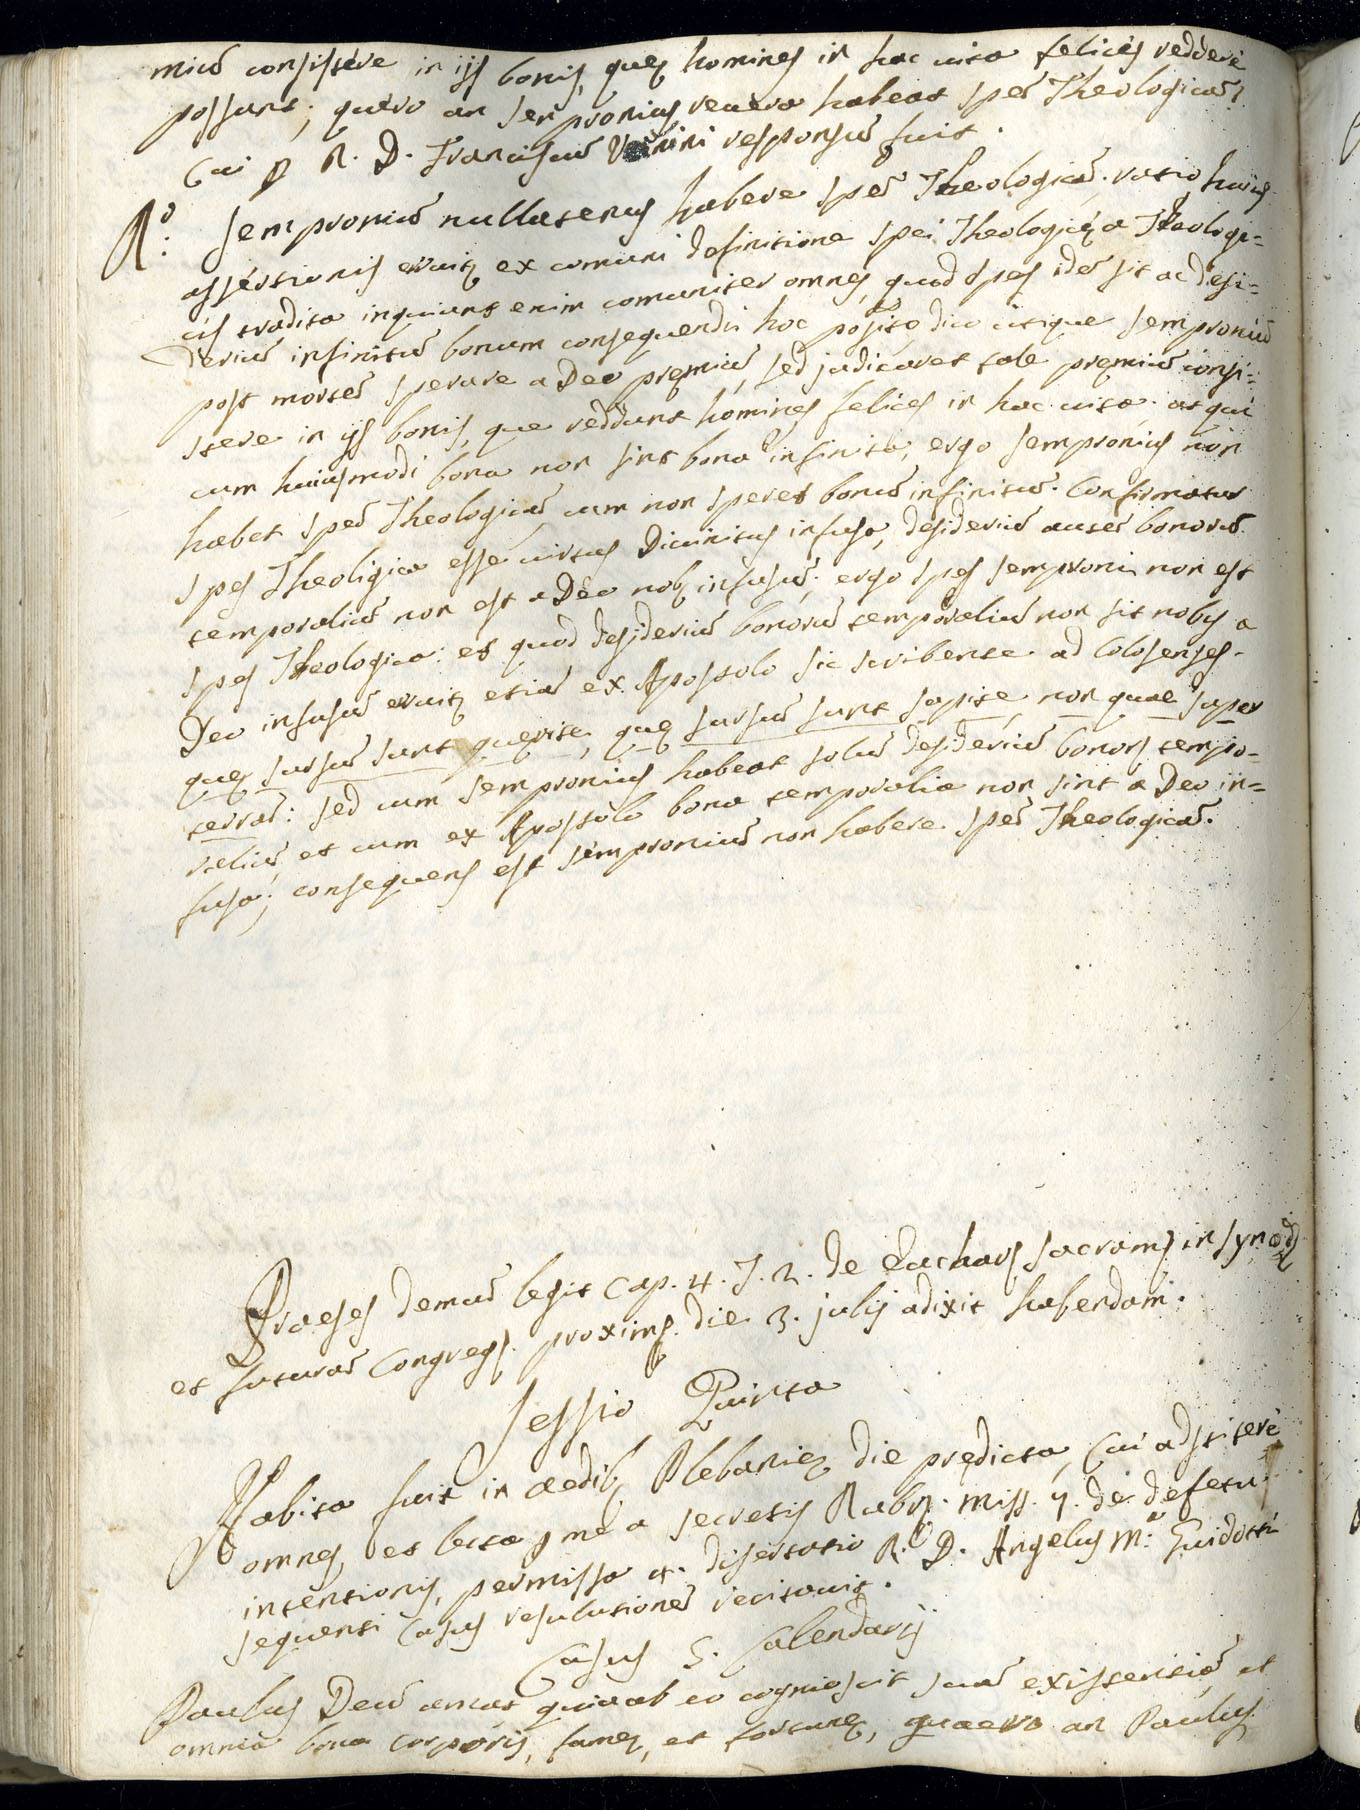 miũ consistere in ijs bonis, quę homines in hac uita felices reddere
possunt; quęro an Sempronius reuera habeat spẽ Theologicã?
Cui p R. D. Franciscũ Vanini responsũ fuit.
Rº: Semproniũ nullatenus habere spẽ Theologicã. ratio huius
assertionis eruitꝛ ex comuni definitione spei Theologicę a Theologi=
cis tradita inquiunt enim comuniter omnes, quod spes idẽ sit ac desi=
deriũ infinitũ bonum consequendi hoc posito dico utique Semproniũ
post mortẽ sperare a Deo pręmiũ, sed judicaret tale pręmiũ consi=
stere in ijs bonis, que reddunt homines felices in hac uita. at qui
cum huiusmodi bona non sint bona infinita, ergo Sempronius non
habet spẽ Theologicã, cum non speret bonũ infinitũ. Confirmatur
spes Theoligica esse uirtus Diuinitus infusa, desideriũ autẽ bonorũ
temporaliũ non est a Deo nob. infusũ; ergo spes Semproni non est
spes Theologica: et quod desideriũ bonorũ temporaliũ non sit nobis a
Deo infusũ eruitꝛ etiã ex Apostolo sic scribente ad Colosenses.
quę sursũ sunt querite, quę sursũ sunt sapite, non quae super
terrã: sed cum Sempronius habeat solũ desideriũ bonorũ tempo=
raliũ, et cum ex Apostolo bona temporalia non sint a Deo in=
fusa; consequens est Semproniũ non habere spẽ Theologicã.
Praeses demũ legit Cap. 4. T. 2. de Eucharis sacramᵒ in Synod
et futurã Congregẽ. proximę die 3. julij adixit habendam.
Sessio Quinta
Habita fuit in aedib. Plebanię die prędicta, Cui adstitere
omnes, et lecta p me a secretis Rubrᵃ. Miss. 7. de defectu
intentionis, permissa q. disertatio R.ᵈ D. Angelus M.ᵃ Guidotti
sequenti Casus resulutionẽ recitauit.
Casus 5. Calendarij
Paulus Deũ amat quia ab eo cogniosuit suã existentiã, et
omnia bona corporis, famę, et fortunę, quaero an Paulus